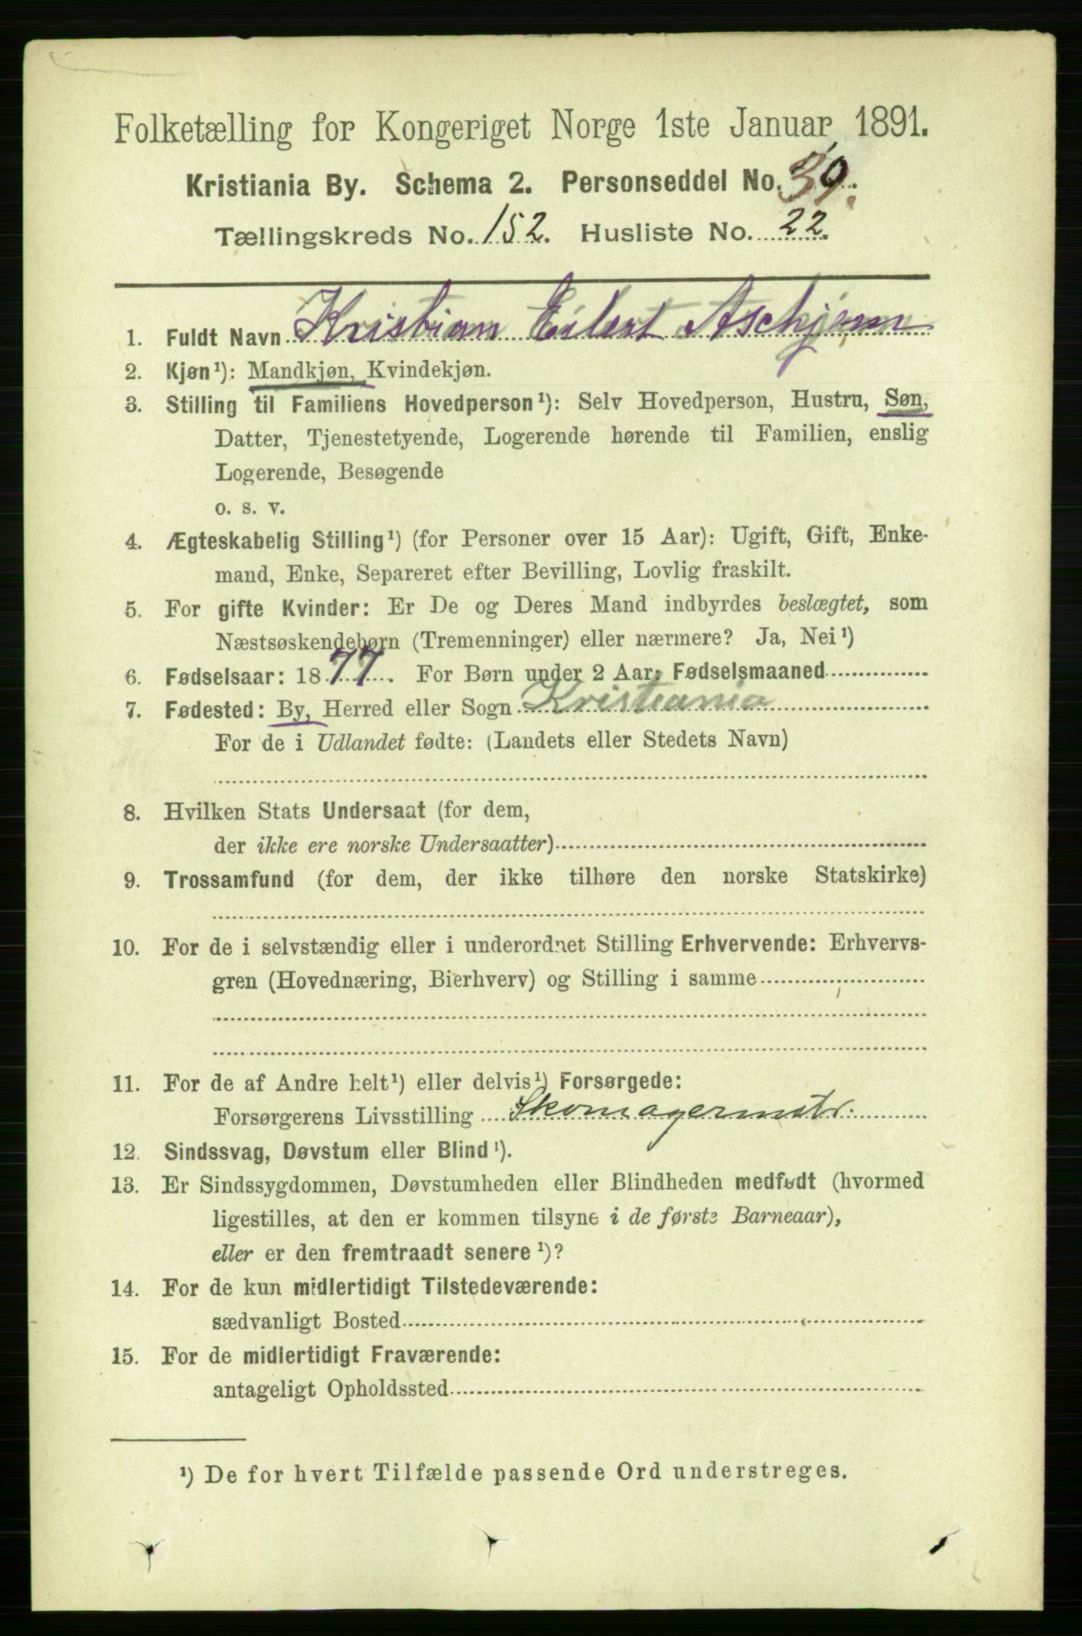 Folketælling for Kongeriget Norge 1ste Januar 1891.
Kristiania By. Schema 2. Personseddel No. 39.
Tællingskreds No. 152. Husliste No. 22.
1. Fuldt Navn Kristian Eilert Aschjem
2. Kjøn¹): Mandkjøn, Kvindekjøn.
3. Stilling til Familiens Hovedperson¹): Selv Hovedperson, Hustru, Søn,
Datter, Tjenestetyende, Logerende hørende til Familien, enslig
Logerende, Besøgende
o. s. v.
4. Ægteskabelig Stilling¹) (for Personer over 15 Aar): Ugift, Gift, Enke-
mand, Enke, Separeret efter Bevilling, Lovlig fraskilt.
5. For gifte Kvinder: Er De og Deres Mand indbyrdes beslægtet, som
Næstsøskendebørn (Tremenninger) eller nærmere? Ja, Nei¹)
6. Fødselsaar: 1877. For Børn under 2 Aar: Fødselsmaaned
7. Fødested: By, Herred eller Sogn Kristiania
For de i Udlandet fødte: (Landets eller Stedets Navn)
8. Hvilken Stats Undersaat (for dem,
der ikke ere norske Undersaatter)
9. Trossamfund (for dem, der ikke tilhøre den norske Statskirke)
10. For de i selvstændig eller i underordnet Stilling Erhvervende: Erhvervs-
gren (Hovednæring, Bierhverv) og Stilling i samme
11. For de af Andre helt¹) eller delvis¹) Forsørgede:
Forsørgerens Livsstilling Skomagermstr.
12. Sindssvag, Døvstum eller Blind¹).
13. Er Sindssygdommen, Døvstumheden eller Blindheden medfødt (hvormed
ligestilles, at den er kommen tilsyne i de første Barneaar),
eller er den fremtraadt senere¹)?
14. For de kun midlertidigt Tilstedeværende:
sædvanligt Bosted
15. For de midlertidigt Fraværende:
antageligt Opholdssted
¹) De for hvert Tilfælde passende Ord understreges.